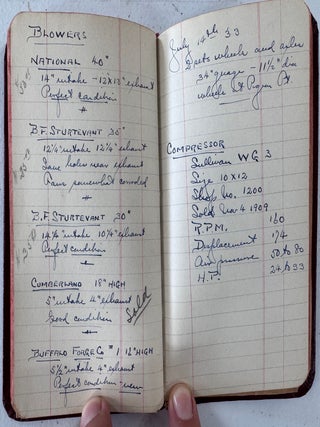 BLOWERS
NATIONAL 40"
14" intake - 12x13" exhaust
Perfect condition
B.F. STURTEVANT 36"
12 1/4" intake 12 1/4" exhaust
One hole near exhaust
Fans somewhat corroded
B.F. STURTEVANT 30"
intake 10 1/4" exhaust
Perfect condition
CUMBERLAND 18" HIGH
5" intake 4" exhaust
Good condition
Sold
BUFFALO FORGE Co #1 HIGH
5 1/2" intake 4" exhaust
Perfect condition - new
July 14th 33
2 sets wheels and axles
34" guage - 11 1/2" dia
wheels at Pigeon Pt
COMPRESSOR
Sullivan WG 3
Size 10 x 12
Shop No. 1200
Sold Nov 4 1909
R.P.M. 160
Displacement 174
Air pressure 50 to 80
H.P. 24 to 33